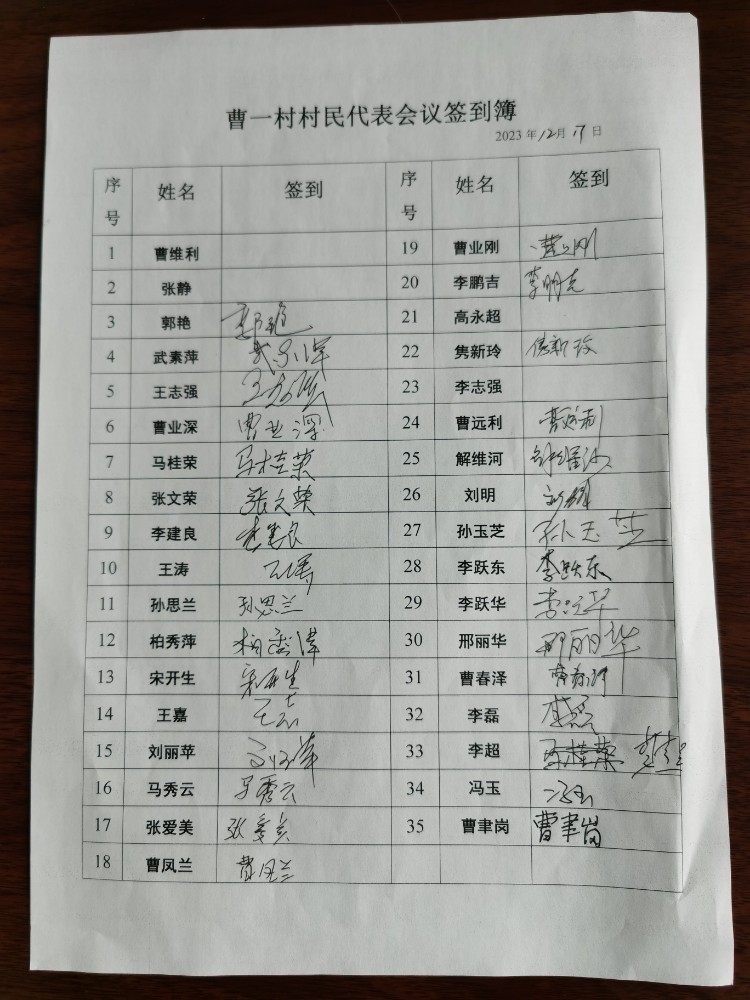 曹一村村民代表会议签到簿
2023 年 12 月 17 日
序号 姓名 签到 序号 姓名 签到
1 曹维利 19 曹业刚 曹业刚
2 张静 20 李鹏吉 李朋吉
3 郭艳 郭艳 21 高永超
4 武素萍 武素萍 22 隽新玲 隽新玲
5 王志强 王志强 23 李志强
6 曹业深 曹业深 24 曹远利 曹远利
7 马桂荣 马桂荣 25 解维河 解维河
8 张文荣 张文荣 26 刘明 刘明
9 李建良 李建良 27 孙玉芝 孙玉芝
10 王涛 王涛 28 李跃东 李跃东
11 孙思兰 孙思兰 29 李跃华 李跃华
12 柏秀萍 柏秀萍 30 邢丽华 邢丽华
13 宋开生 宋开生 31 曹春泽 曹春泽
14 王嘉 王志 32 李磊 李磊
15 刘丽苹 33 李超 马桂荣 李超
16 马秀云 马秀云 34 冯玉 冯玉
17 张爱美 张爱美 35 曹聿岗 曹聿岗
18 曹凤兰 曹凤兰